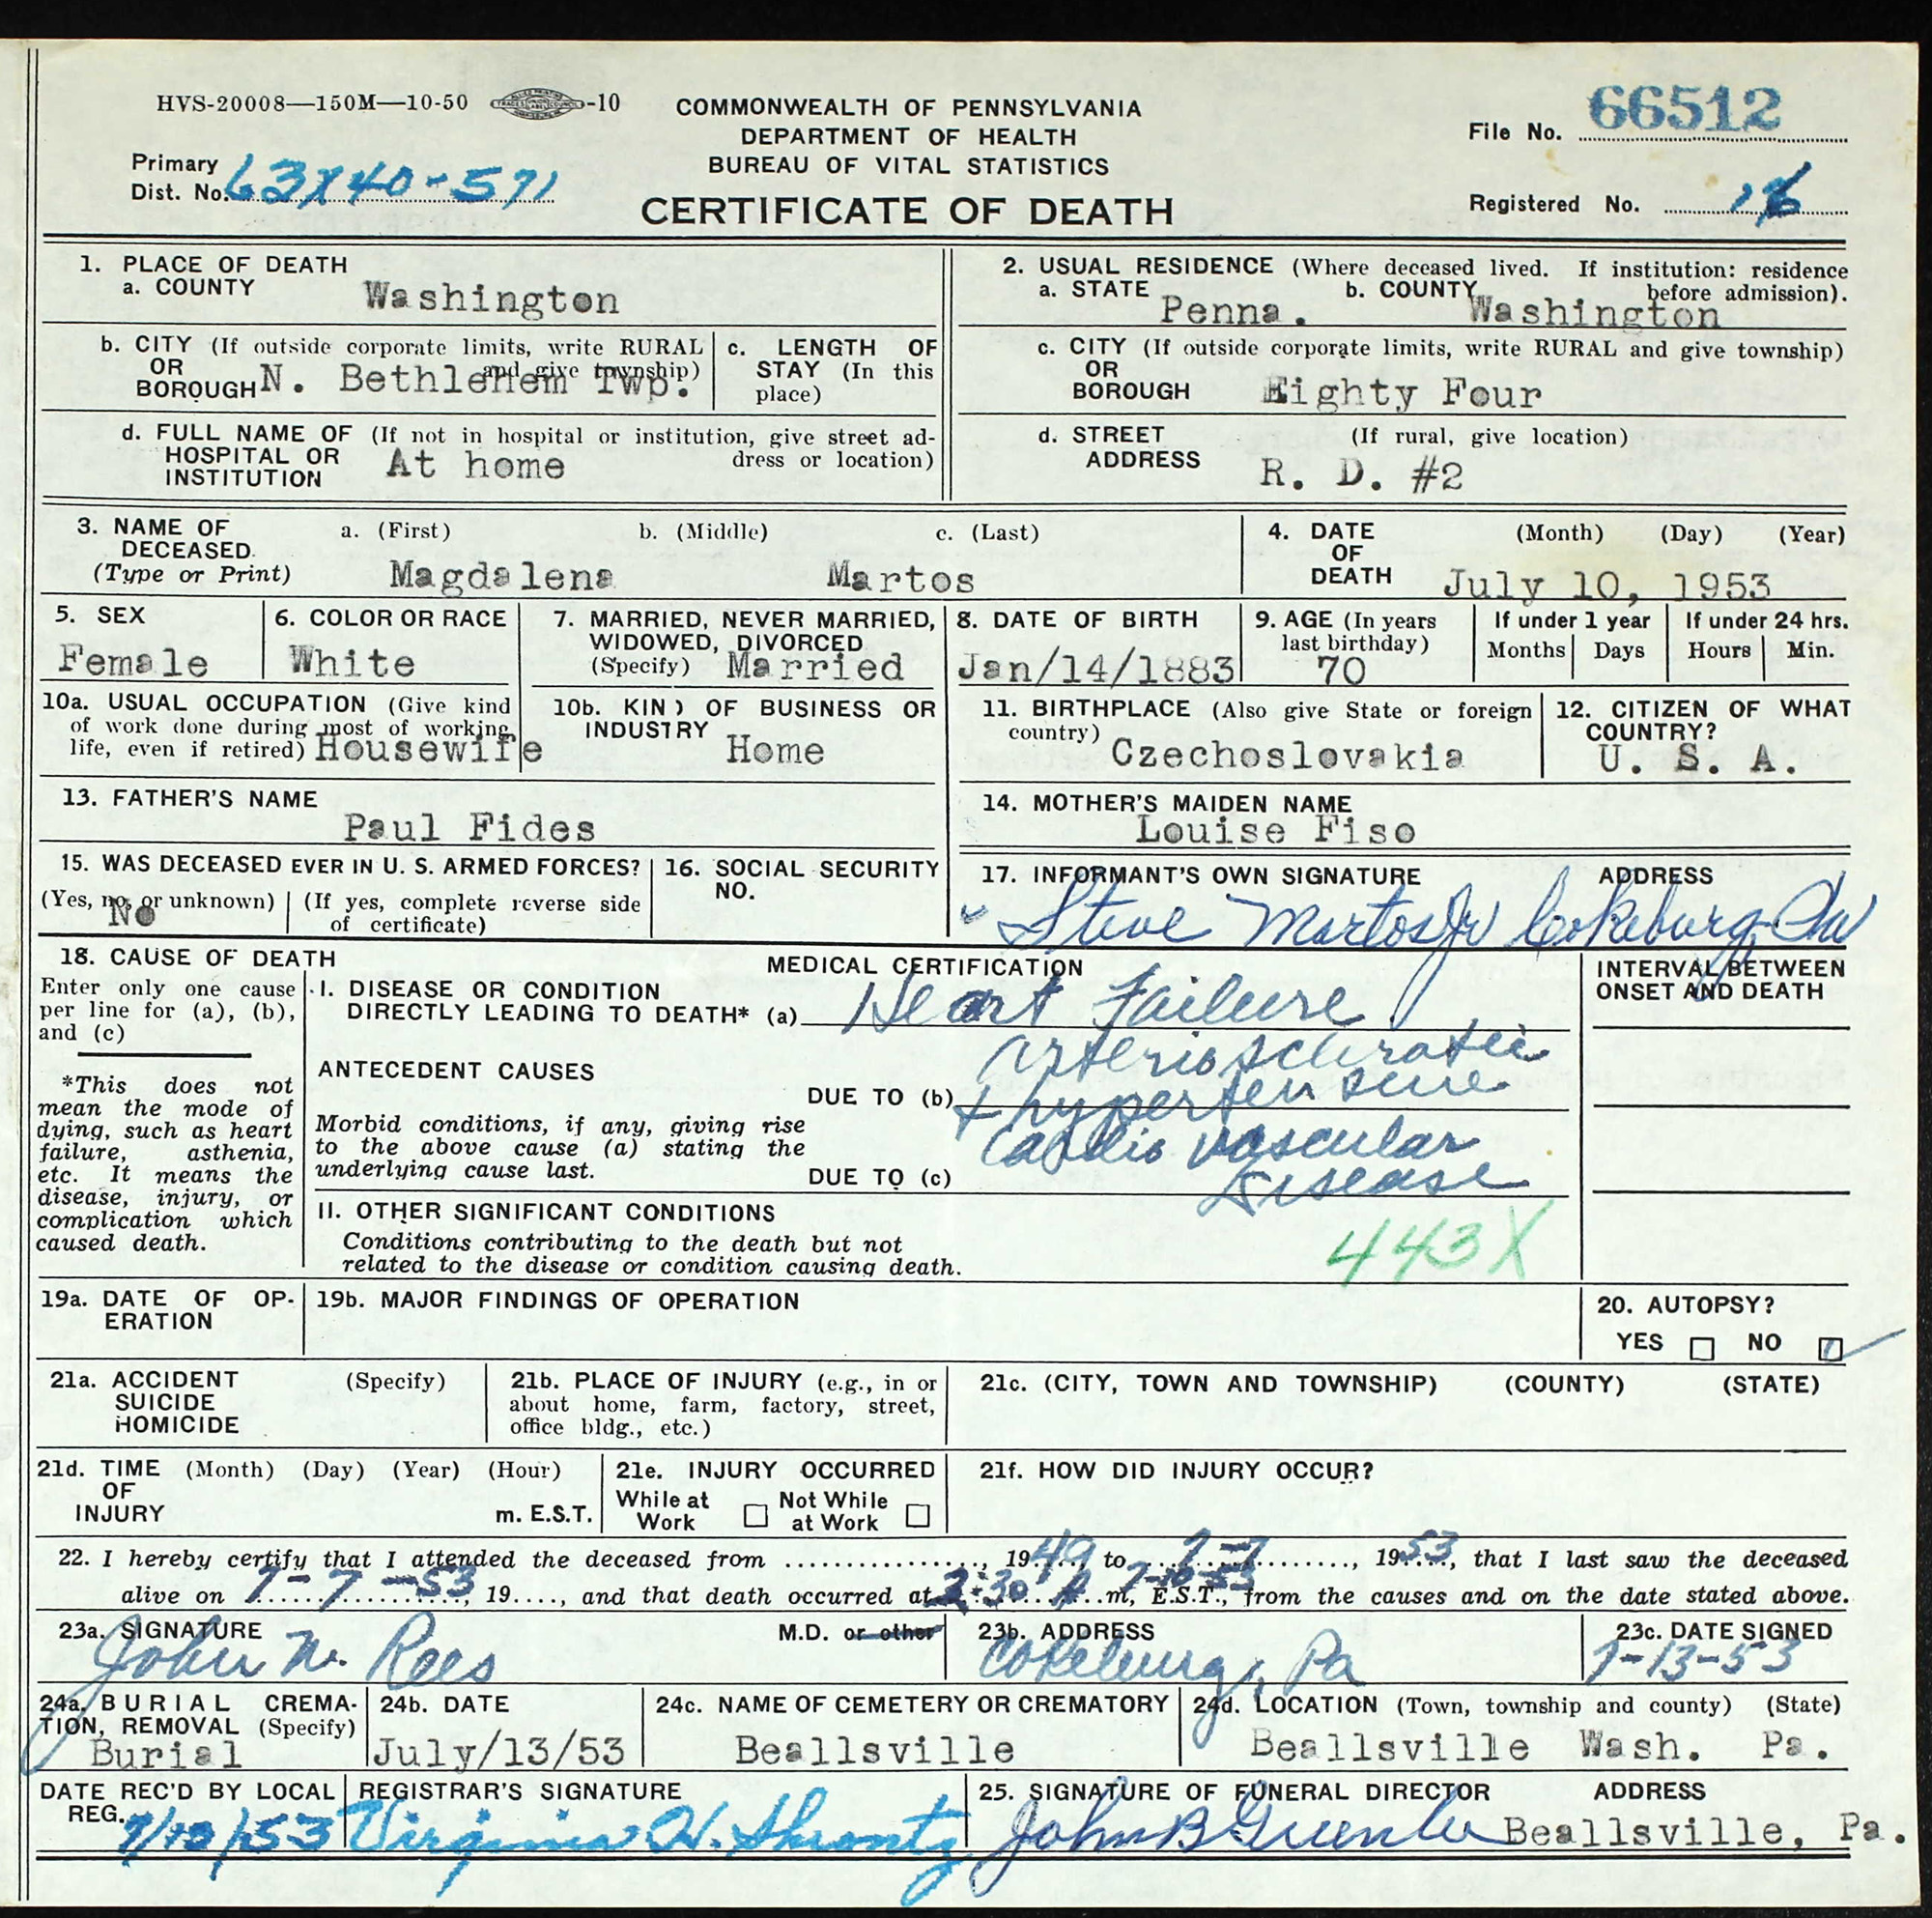 HVS-20008—150M—10-50 -10
COMMONWEALTH OF PENNSYLVANIA
DEPARTMENT OF HEALTH
BUREAU OF VITAL STATISTICS
CERTIFICATE OF DEATH
File No. 66512
Primary
Dist. No. 63X40-571
Registered No.
1. PLACE OF DEATH
a. COUNTY Washington
b. CITY (If outside corporate limits, write RURAL
OR and give township)
BOROUGH N. Bethlehem Twp.
c. LENGTH OF
STAY (In this
place)
d. FULL NAME OF (If not in hospital or institution, give street ad-
HOSPITAL OR dress or location)
INSTITUTION At home
2. USUAL RESIDENCE (Where deceased lived. If institution: residence
before admission).
a. STATE Penna. b. COUNTY Washington
c. CITY (If outside corporate limits, write RURAL and give township)
OR
BOROUGH Eighty Four
d. STREET (If rural, give location)
ADDRESS R. D. #2
3. NAME OF a. (First) b. (Middle) c. (Last)
DECEASED
(Type or Print) Magdalena Martos
4. DATE (Month) (Day) (Year)
OF
DEATH July 10, 1953
5. SEX
Female
6. COLOR OR RACE
White
7. MARRIED, NEVER MARRIED,
WIDOWED, DIVORCED
(Specify) Married
8. DATE OF BIRTH
Jan/14/1883
9. AGE (In years
last birthday)
70
If under 1 year
Months Days
If under 24 hrs.
Hours Min.
10a. USUAL OCCUPATION (Give kind
of work done during most of working
life, even if retired) Housewife
10b. KIND OF BUSINESS OR
INDUSTRY
Home
11. BIRTHPLACE (Also give State or foreign
country) Czechoslovakia
12. CITIZEN OF WHAT
COUNTRY?
U. S. A.
13. FATHER'S NAME
Paul Fides
14. MOTHER'S MAIDEN NAME
Louise Fiso
15. WAS DECEASED EVER IN U. S. ARMED FORCES?
(Yes, no, or unknown) (If yes, complete reverse side
No of certificate)
16. SOCIAL SECURITY
NO.
17. INFORMANT'S OWN SIGNATURE ADDRESS
Steve Martos Jr Cokeburg, Pa
18. CAUSE OF DEATH
Enter only one cause
per line for (a), (b),
and (c)
*This does not
mean the mode of
dying, such as heart
failure, asthenia,
etc. It means the
disease, injury, or
complication which
caused death.
MEDICAL CERTIFICATION
I. DISEASE OR CONDITION
DIRECTLY LEADING TO DEATH* (a) Heart Failure
ANTECEDENT CAUSES
Arteriosclerotic
DUE TO (b) + hypertensive
Morbid conditions, if any, giving rise
to the above cause (a) stating the
underlying cause last.
Cardio vascular
DUE TO (c) Disease
II. OTHER SIGNIFICANT CONDITIONS
Conditions contributing to the death but not
related to the disease or condition causing death.
443X
INTERVAL BETWEEN
ONSET AND DEATH
19a. DATE OF OP-
ERATION
19b. MAJOR FINDINGS OF OPERATION
20. AUTOPSY?
YES NO
21a. ACCIDENT (Specify)
SUICIDE
HOMICIDE
21b. PLACE OF INJURY (e.g., in or
about home, farm, factory, street,
office bldg., etc.)
21c. (CITY, TOWN AND TOWNSHIP) (COUNTY) (STATE)
21d. TIME (Month) (Day) (Year) (Hour)
OF
INJURY m. E.S.T.
21e. INJURY OCCURRED
While at Not While
Work at Work
21f. HOW DID INJURY OCCUR?
22. I hereby certify that I attended the deceased from ................, 1949 to 7-7, 1953, that I last saw the deceased
alive on 7-7-53, 19...., and that death occurred at 2:30 A m, 7-10-53 E.S.T., from the causes and on the date stated above.
23a. SIGNATURE M.D. or other
John N. Rees
23b. ADDRESS
Cokeburg, Pa
23c. DATE SIGNED
7-13-53
24a. BURIAL CREMA-
TION, REMOVAL (Specify)
Burial
24b. DATE
July/13/53
24c. NAME OF CEMETERY OR CREMATORY
Beallsville
24d. LOCATION (Town, township and county) (State)
Beallsville Wash. Pa.
DATE REC'D BY LOCAL
REG. 7/13/53
REGISTRAR'S SIGNATURE
Virginia H. Shrontz
25. SIGNATURE OF FUNERAL DIRECTOR ADDRESS
John B Greenlee Beallsville, Pa.